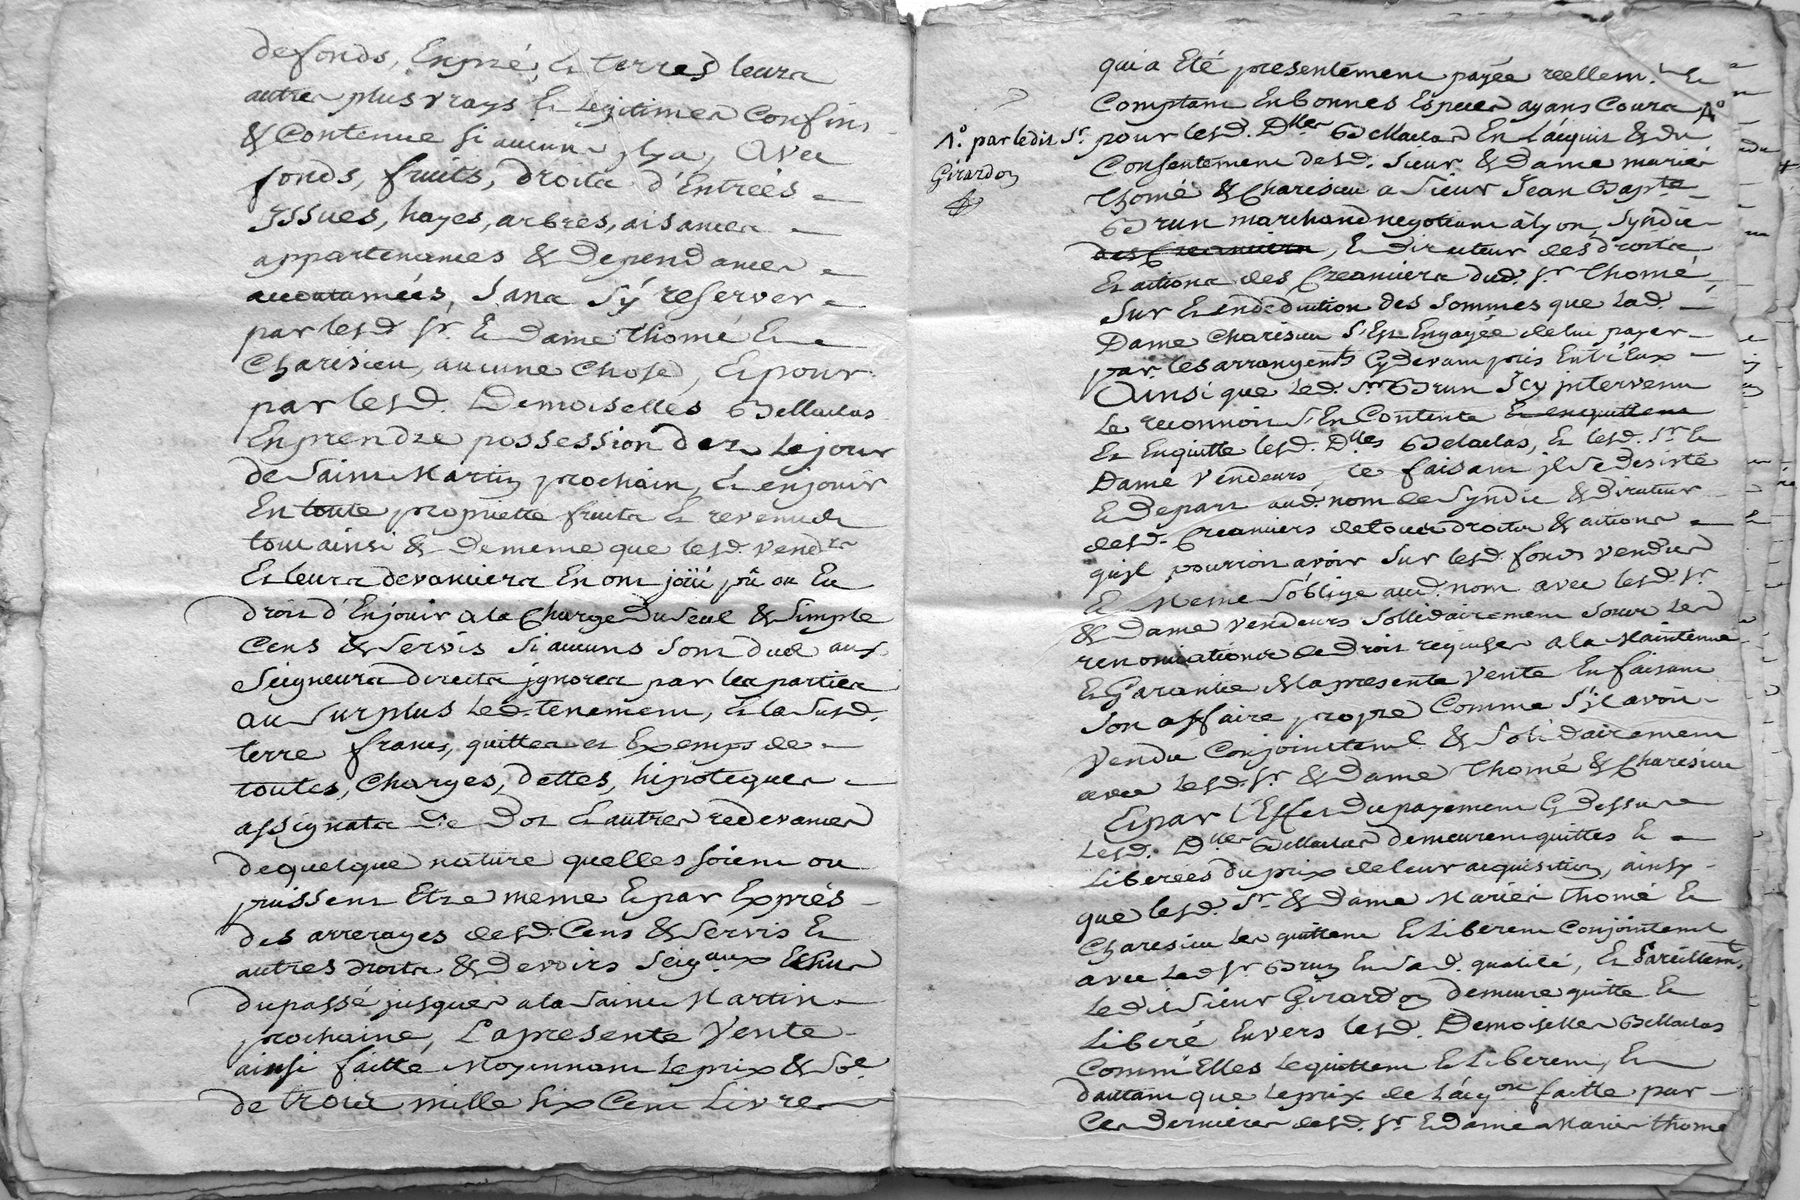 de fonds, Enpré, & terres leurs
autres plus vrays & Legitimes Confins
& Contenue si aucun jlya, Avec
fonds, fruits, droits d'Entrées
Issues, hayes, arbres, aisances
appartenances & Dependances
accoutumées, Sans s'ÿ reserver
par lesd. Sr. & dame Thomé &
Charesieu, aucune chose, Et pour
par lesd. Demoiselles Bellaclas
En prendre possession dez Le jour
de Saint Martin prochain, & enjouir
En toute proprietté fruits & revenus
tout ainsi & Demême que lesd. vendrs
Et leurs devanciers En ont joüi pû ou Eu
droit d'Enjouir a la Charge Du seul & simple
Cens & servis si aucuns sont dus aux
Seigneurs directs jgnorez par les parties
au surplus Led. tenement, & la susd.
terre francs, quittes et Exempts de
toutes, Charges, dettes, hipoteques
assignats De Dot & autres redevances
de quelque nature quelles soient ou
puissent Etre meme & par Exprès
des arrerages desd. Cens & servis &
autres droits & Devoirs seigaux Echus
du passé jusques a la Saint Martin
prochaine, La presente Vente
ainsi faitte Moyennant Le prix & Soe
de trois mille six Cent Livres
qui a Eté presentement payée reellemt. &
Comptant En bonnes Especes ayans Cours 1°
1° par ledit Sr.
Girardon
pour lesd. Dlles Bellaclas En L'acquis & du
Consentement desd. sieur & Dame mariés
Thomé & Charesieu a sieur Jean Bapte
Brun marchand negotiant à Lyon, Syndic
des Creanciers, & directeur des droits
Et actions des Creanciers dud. Sr. Thomé,
Sur & en deduction des sommes que Lad.
Dame Charesieu s'Est Engagée de lui payer
par les arrangents Cydevant pris Entr'Eux
Ainsi que Led. Sr. Brun Icy jntervenu
Le reconnoit s'En Contente & en quittent
Et En quitte lesd. Dlles Belaclas, & lesd. Sr. &
Dame Vendeurs, ce faisant jl se desiste
& Depart aud. nom de Syndic & Directeur
desd. Creanciers de tous droits & actions
qu'jl pourroit avoir sur lesd. fonds vendus
& Meme s'oblige aud. nom avec lesd. Sr.
& Dame vendeurs sollidairement sous Les
renonciations de Droit requises a la Maintenue
& Garantie de la presente Vente En faisant
Son affaire propre Comme s'jl avoit
Vendu Conjointemt & solidairement
avec Lesd. Sr. & Dame Thomé & Charesieu
Et par l'Effet Du payement Cy Dessus
Lesd. Dlles Bellaclas demeurent quittes &
Liberées du prix de leur acquisition, ainsy
que lesd. Sr. & Dame Mariés Thomé &
Charesieu Les quittent & Liberent Conjointemt
avec Led. Sr. Brun En sad. qualité, & Pareillemt.
Ledit Sieur Girardon demeure quitte &
Liberé Envers lesd. Demoiselles Bellaclas
Comm'Elles Le quittent & Liberent, &
d'autant que Le prix de L'acqon faitte par
Ces Dernieres desd. Sr. & Dame Mariés Thomé